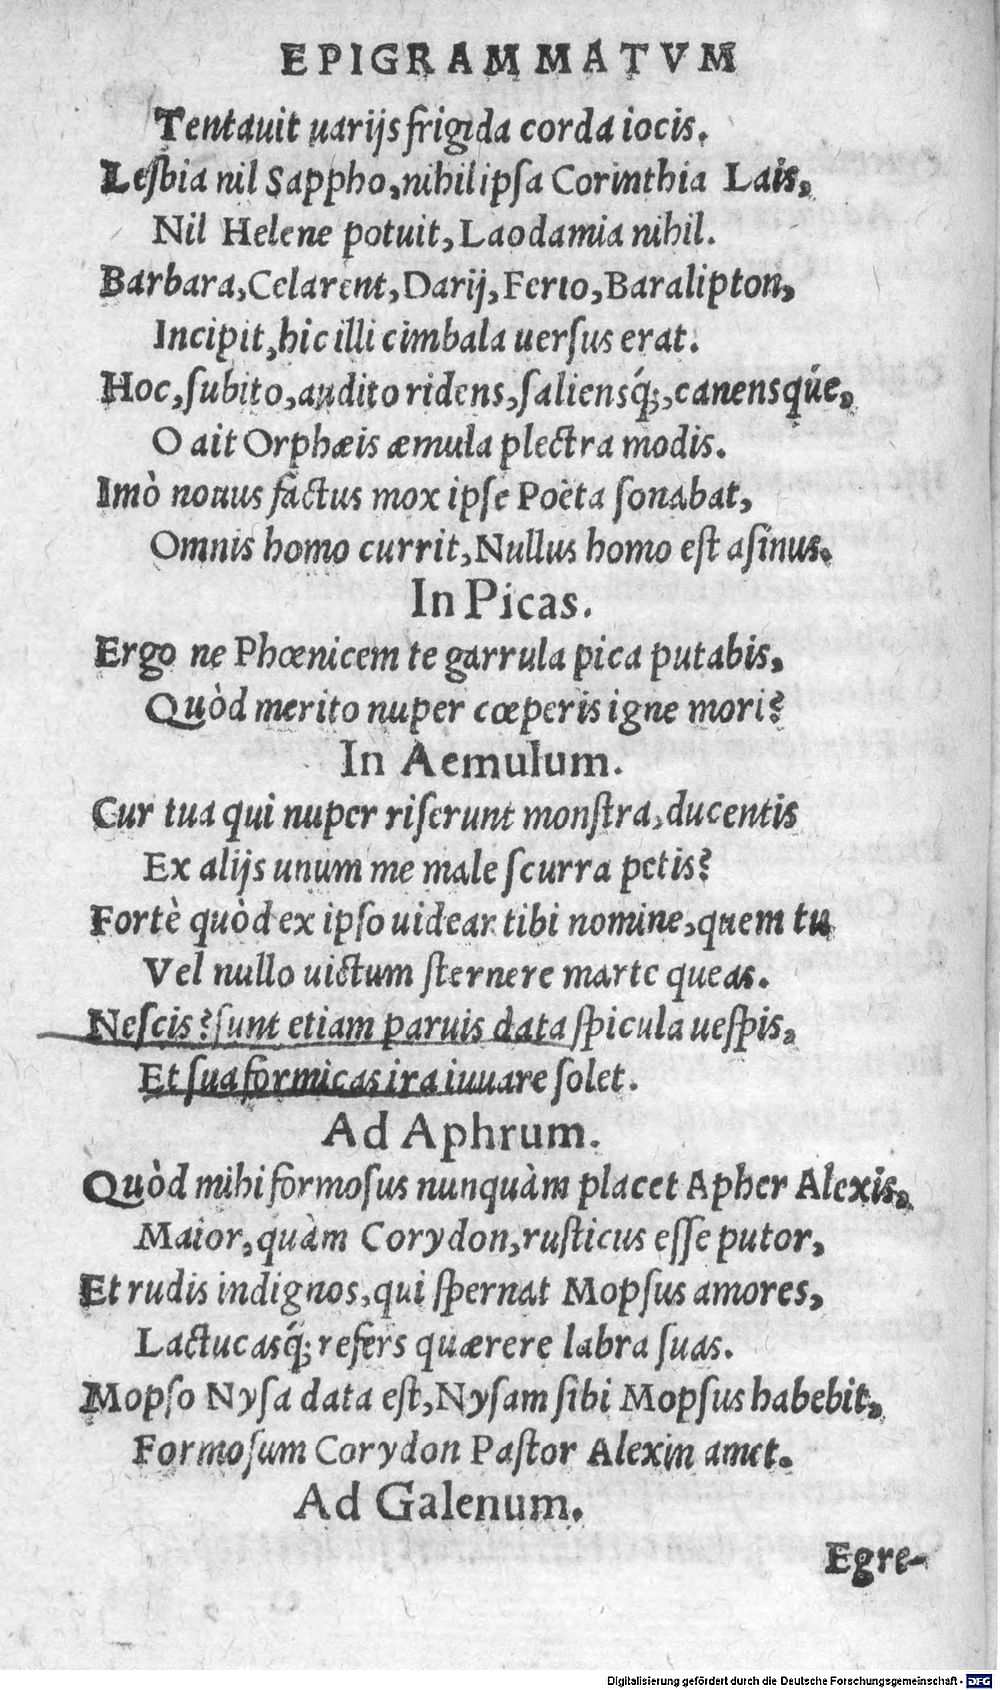 EPIGRAMMATVM
Tentauit uarijs frigida corda iocis.
Lesbia nil Sappho, nihil ipsa Corinthia Lais,
Nil Helene potuit, Laodamia nihil.
Barbara, Celarent, Darij, Ferio, Baralipton,
Incipit, hic illi cimbala uersus erat.
Hoc, subito, audito ridens, saliensq́;, canensqúe,
O ait Orphæis æmula plectra modis.
Imò nouus factus mox ipse Poëta sonabat,
Omnis homo currit, Nullus homo est asinus.
In Picas.
Ergo ne Phœnicem te garrula pica putabis,
Quòd merito nuper cœperis igne mori?
In Aemulum.
Cur tua qui nuper riserunt monstra, ducentis
Ex alijs unum me male scurra petis?
Fortè quòd ex ipso uidear tibi nomine, quem tu
Vel nullo uictum sternere marte queas.
Nescis? sunt etiam paruis data spicula uespis,
Et sua formicas ira iuuare solet.
Ad Aphrum.
Quòd mihi formosus nunquàm placet Apher Alexis,
Maior, quàm Corydon, rusticus esse putor,
Et rudis indignos, qui spernat Mopsus amores,
Lactucasq́; refers quærere labra suas.
Mopso Nysa data est, Nysam sibi Mopsus habebit,
Formosum Corydon Pastor Alexin amet.
Ad Galenum.
Egre-
Digitalisierung gefördert durch die Deutsche Forschungsgemeinschaft - DFG